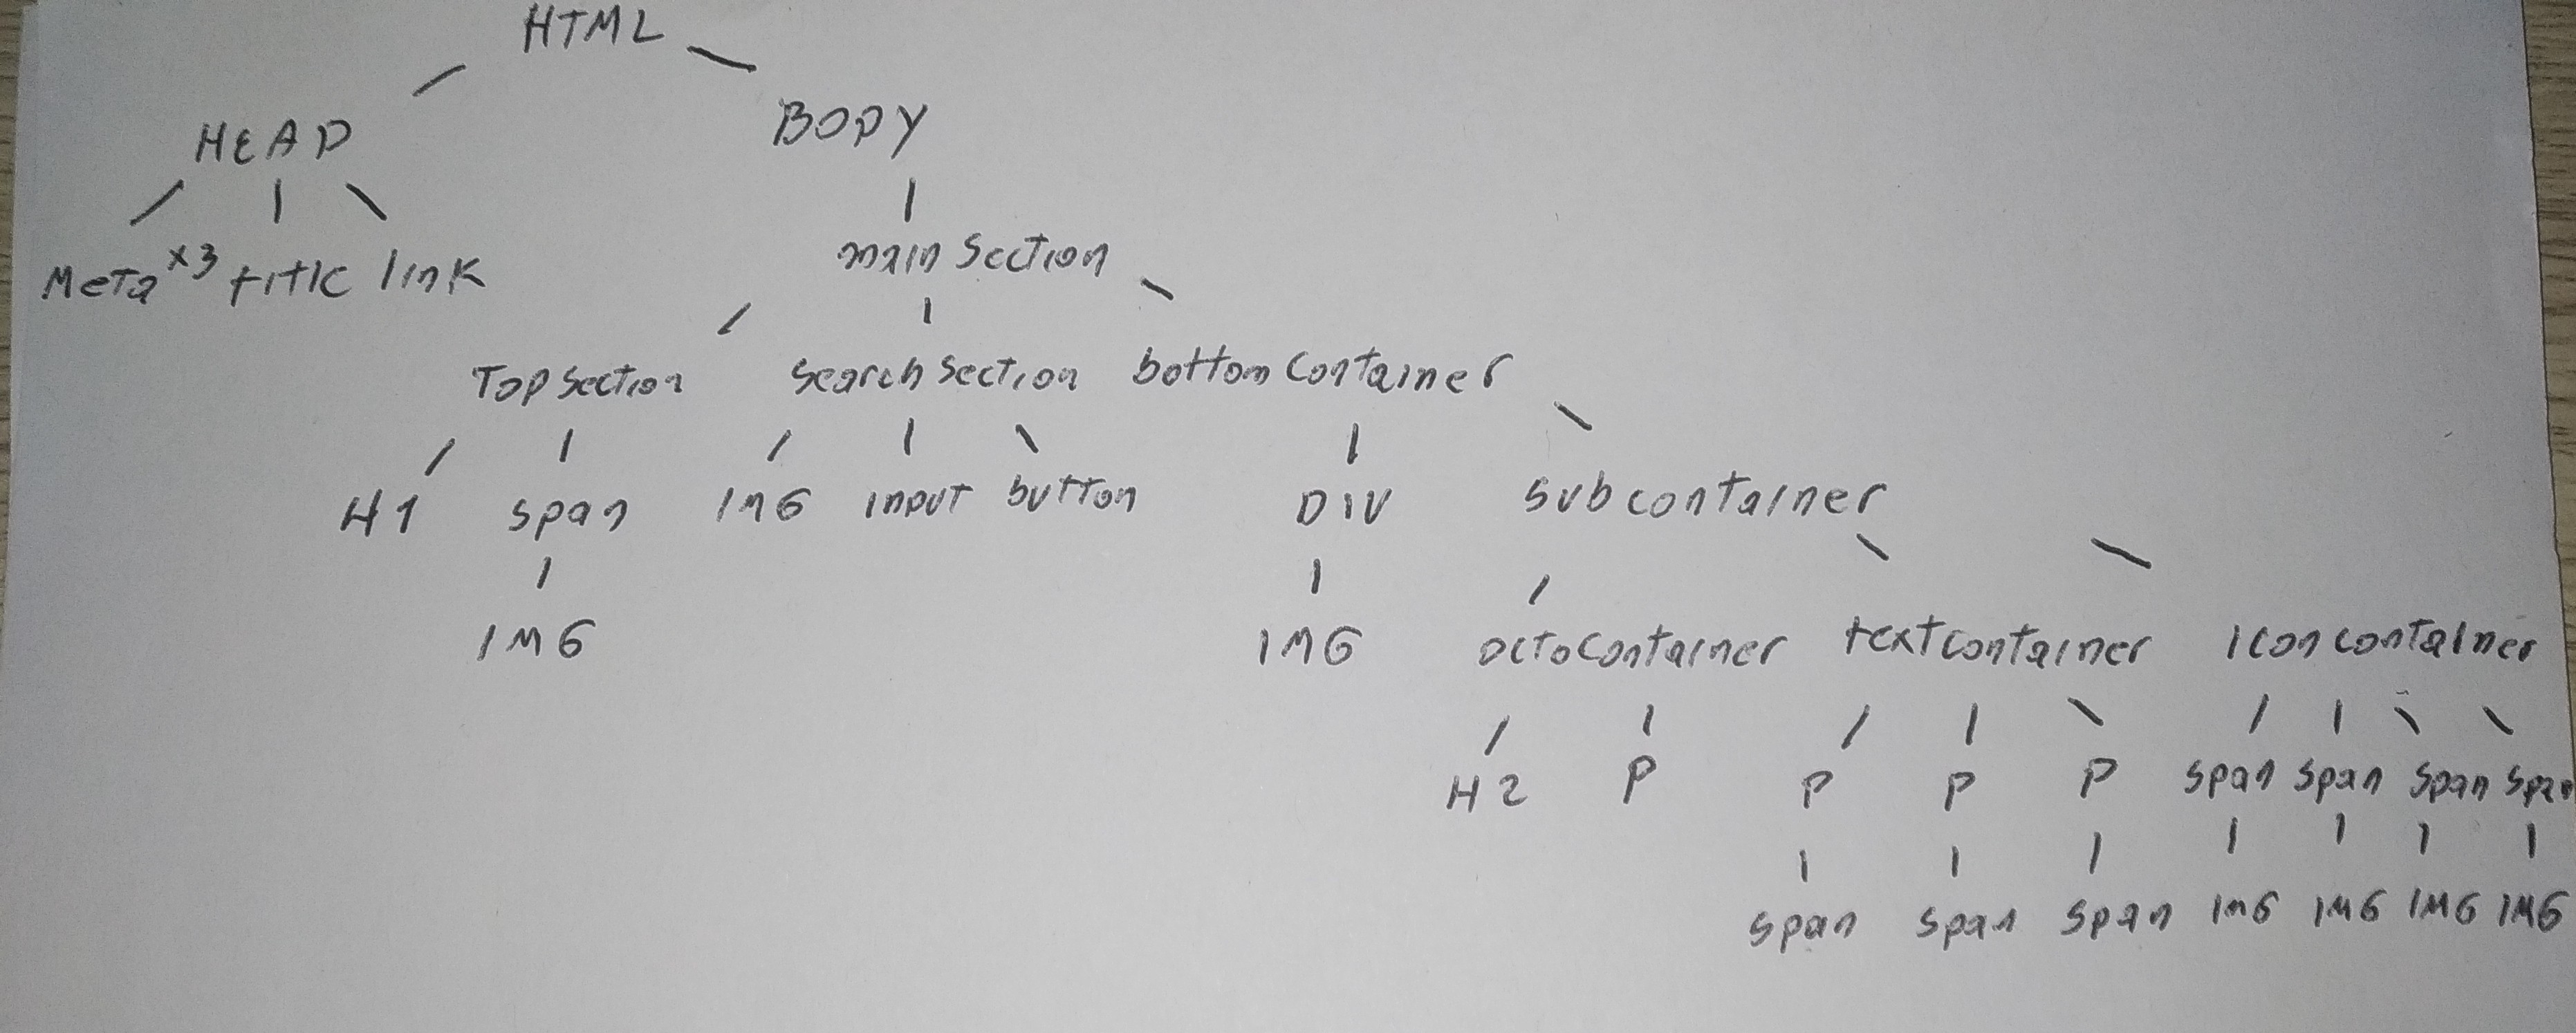 HTML
HEAD BODY
Meta x3 title link main section
Top section search section bottom container
H1 span IMG input button DIV subcontainer
IMG IMG octocontainer textcontainer icon container
H2 P P P P span span span span
span span span IMG IMG IMG IMG